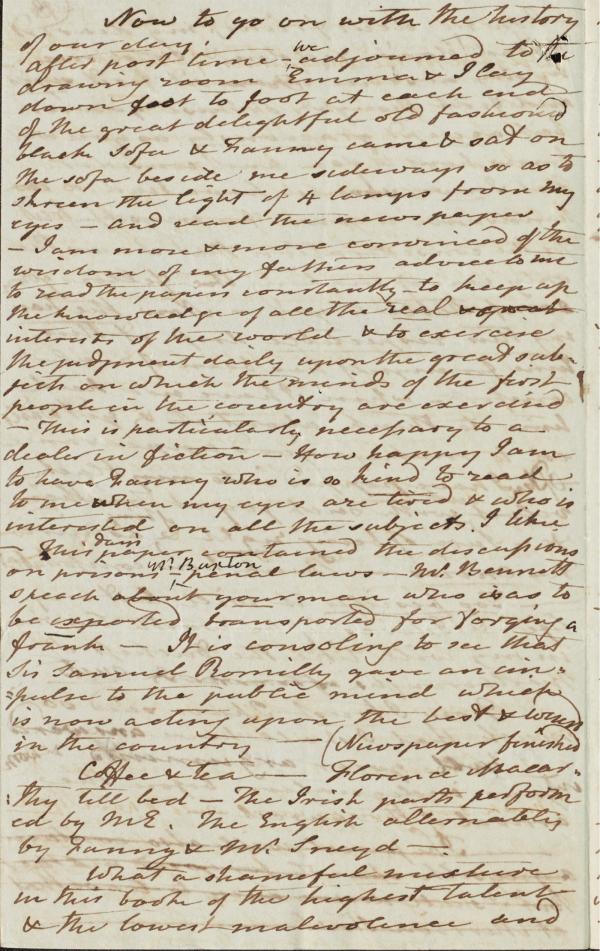 Now to go on with the history
of our day.
after post time we adjourned to the
drawing room Emma & I lay
down foot to foot at each end
of the great delightful old fashiond
black sofa & Fanny came & sat on
the sofa beside me sideways so as to
skreen the light of 4 lamps from my
eyes – and read the newspaper
– I am more & more convinced of the
wisdom of my fathers advice to me
to read the papers constantly – to keep up
the knowledge of all the real & great
interests of the world & to exercise
the judgment daily upon the great sub-
jects on which the minds of the first
people in the country are exercised
– This is particularly necessary to a
dealer in fiction – How happy I am
to have Fanny who is so kind to read
to me when my eyes are tired & who is
interested on all the subjects I like
– This days paper contained the discussions
on prisons – Mr Buxton penal laws – Mr. Bennett
speech about your man who is as to
be exported transported for forging a
frank – It is consoling to see that
Sir Samuel Romilly gave an im=
=pulse to the public mind which
is now acting upon the best & wisest
in the country – (Newspaper finished
Coffee & tea – Florence Macar=
:thy till bed – The Irish parts perform
ed by ME. The English alternately
by Fanny & Mr. Sneyd –
What a shameful mixture
in this book of the highest talent
& the lowest malevolence and